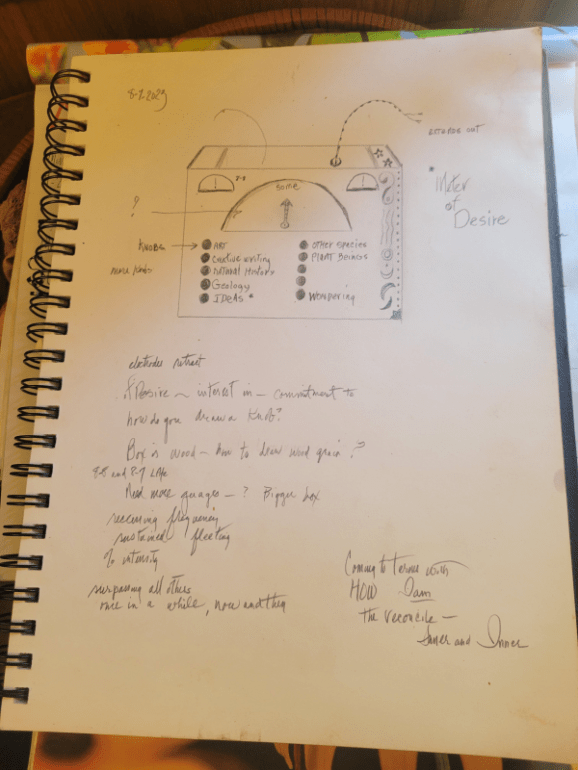 8-2.2023
records out
* Meter
of
Desire
some
?
KNOBS
more knobs
ART
Creative writing
Natural History
Geology
IDeAs *
other species
PLANT BeingS
WONDERING
electrodes retract
* Desire ~ interest in - commitment to
how do you draw a knob?
Box is wood - how to draw wood grain?
8-8 and 8-9 LAte
Need more guages - ? Bigger box
recurring frequency
sustained fleeting
% intensity
surpassing all others
once in a while, now and then
Coming to terms with
HOW I am
the reconcile -
Inner and Inner